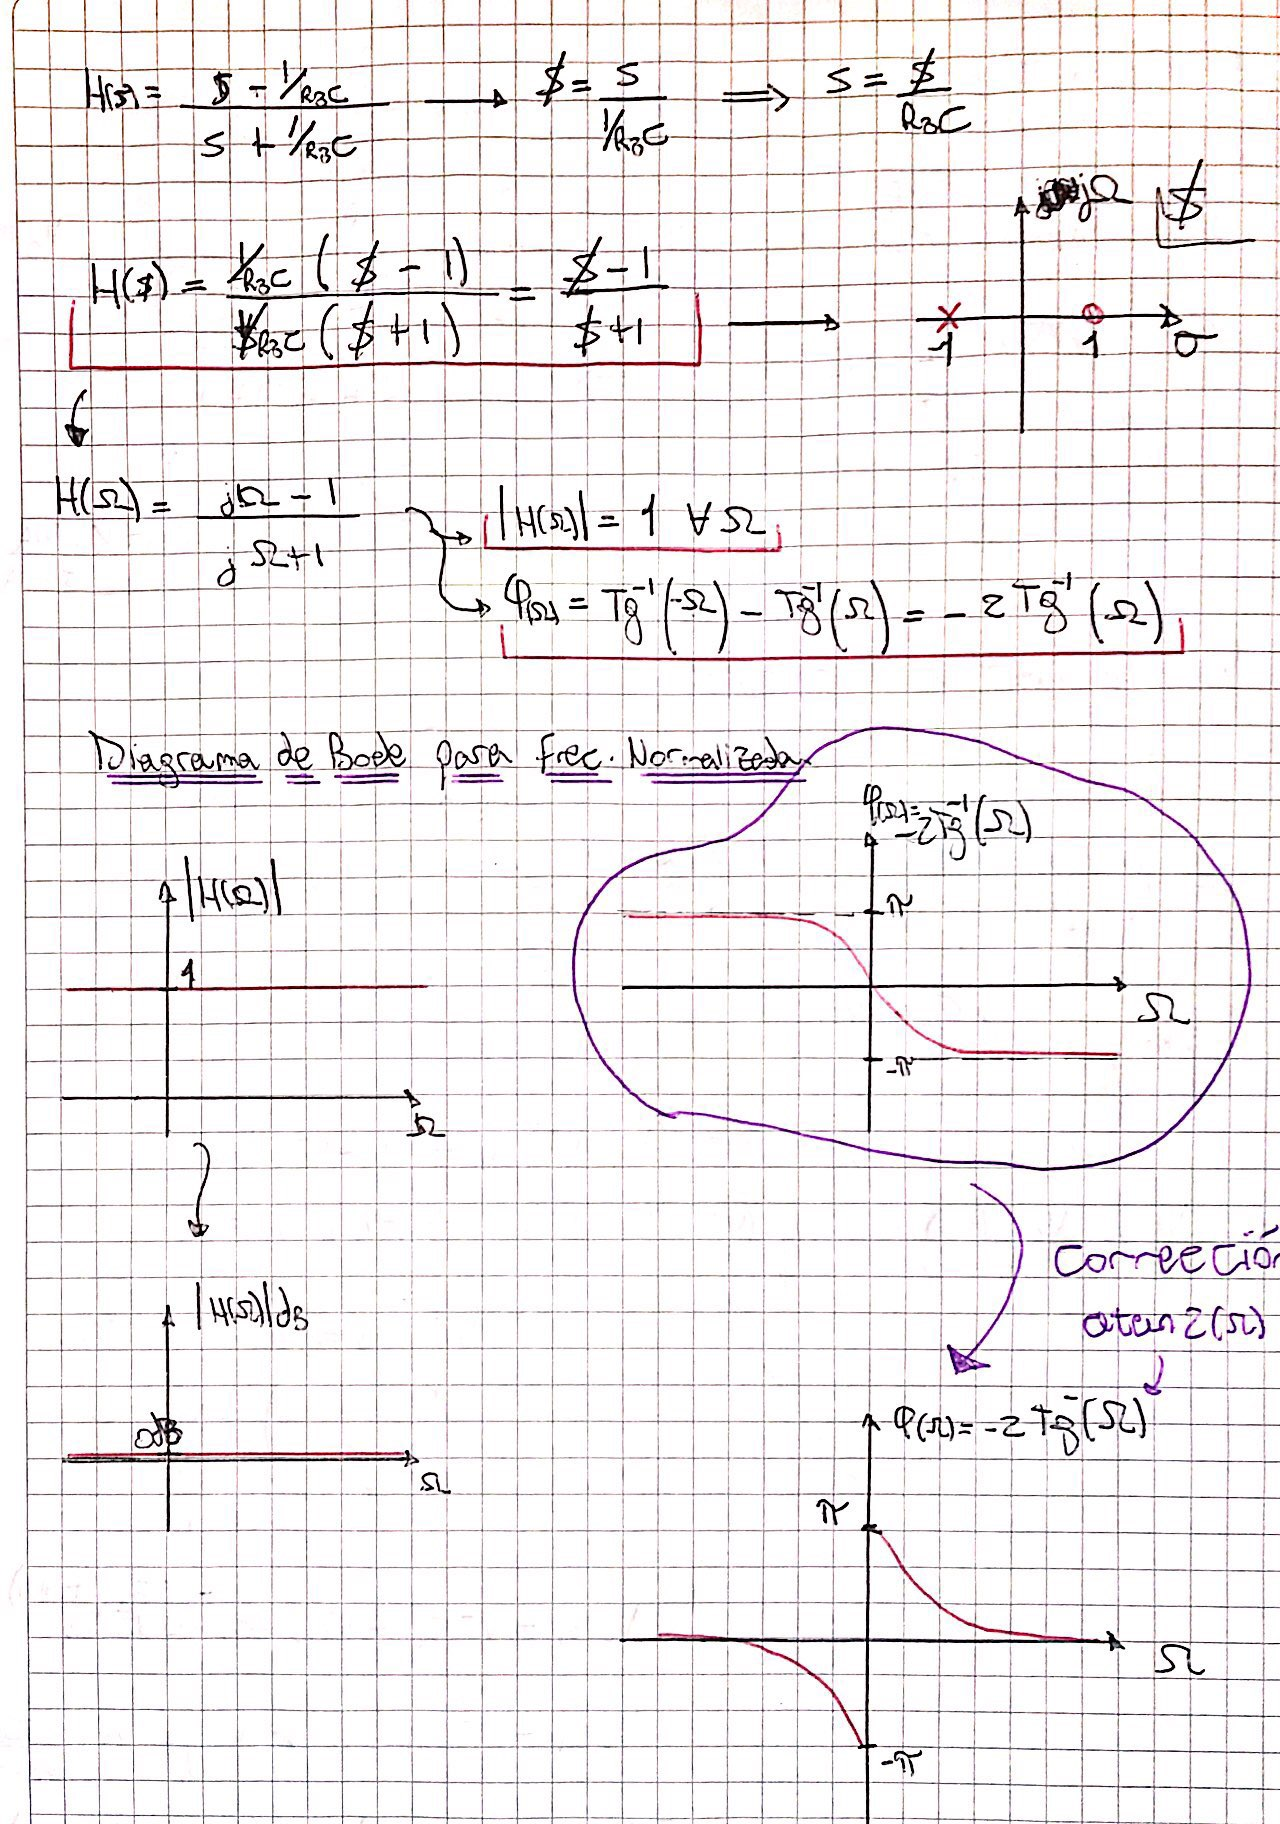 H(s) = (s - 1/R₃C) / (s + 1/R₃C) → $ = s / (1/R₃C) ⟹ s = $ / R₃C
jΩ $
H($) = 1/R₃C ($ - 1) / 1/R₃C ($ + 1) = ($ - 1) / ($ + 1) →
-1 1 σ
H(Ω) = (jΩ - 1) / (jΩ + 1)
|H(Ω)| = 1 ∀ Ω
φ(Ω) = Tg⁻¹(-Ω) - Tg⁻¹(Ω) = - 2 Tg⁻¹(Ω)
Diagrama de Bode para Frec. Normalizada
φ(Ω) = -2Tg⁻¹(Ω)
|H(Ω)|
π
1
Ω
-π
Ω
Corrección
atan2(Ω)
|H(Ω)|dB
φ(Ω) = -2 Tg⁻(Ω)
0dB
Ω
π
Ω
-π